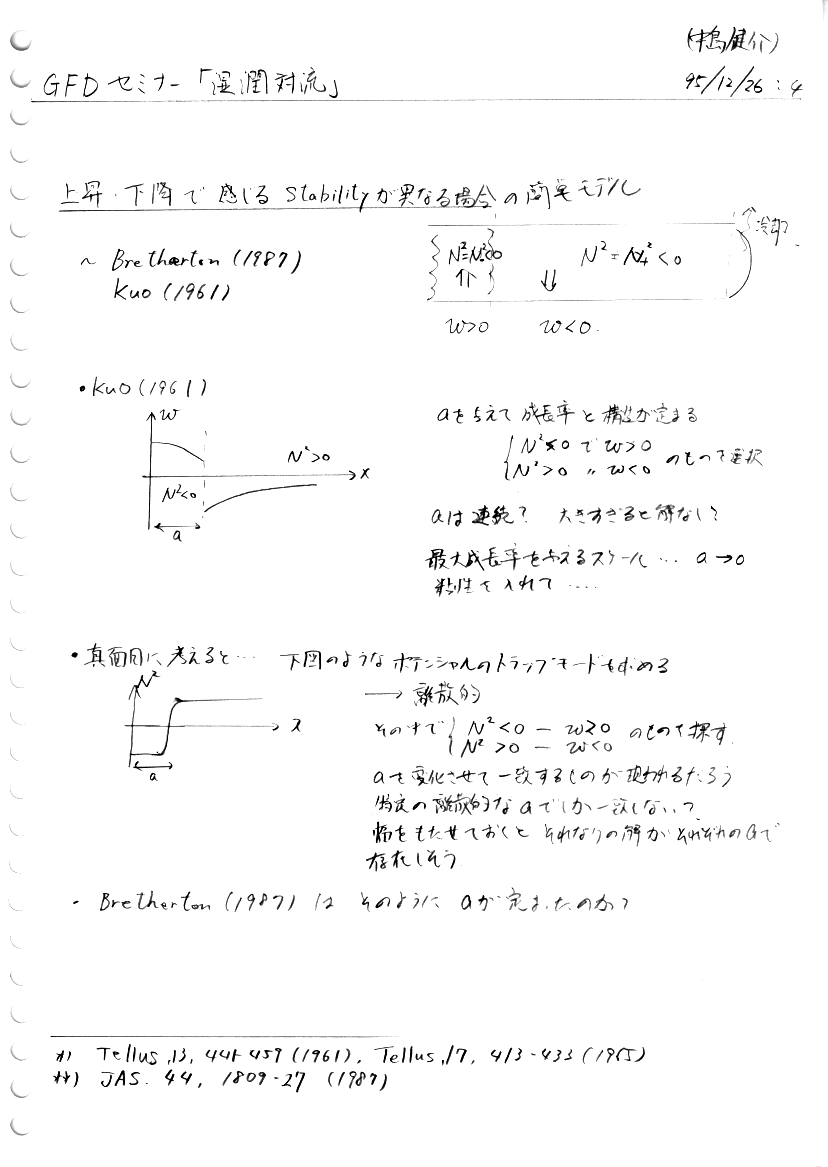 (中島健介)
GFD セミナー「湿潤対流」
95/12/26 : 4
上昇・下降で感じる Stability が異なる場合の簡単モデル
冷却
~ Bretherton (1987)
Kuo (1961)
N²=N²<0
N² = N₊² < 0
w>0 w<0.
• Kuo (1961)
w
N²>0
x
N²<0
a
aを与えて成長率と構造が定まる
N²<0 で w>0
N²>0 〃 w<0 のものを選択
aは連続? 大きすぎると解なし?
最大成長率を与えるスケール … a→0
粘性を入れて ‥‥
• 真面目に考えると… 下図のようなポテンシャルのトラップモードを求める
N²
x
a
→ 離散的
その中で N²<0 — w≥0
N²>0 — w<0 のものを探す
aを変化させて一致するものが現われるだろう
特定の離散的なaでしか一致しない?
幅をもたせておくと それなりの解が それぞれのaで
存在しそう
- Bretherton (1987) は そのように aが定またのか?
*) Tellus, 13, 441-459 (1961), Tellus, 17, 413-433 (1965)
**) JAS. 44, 1809-27 (1987)